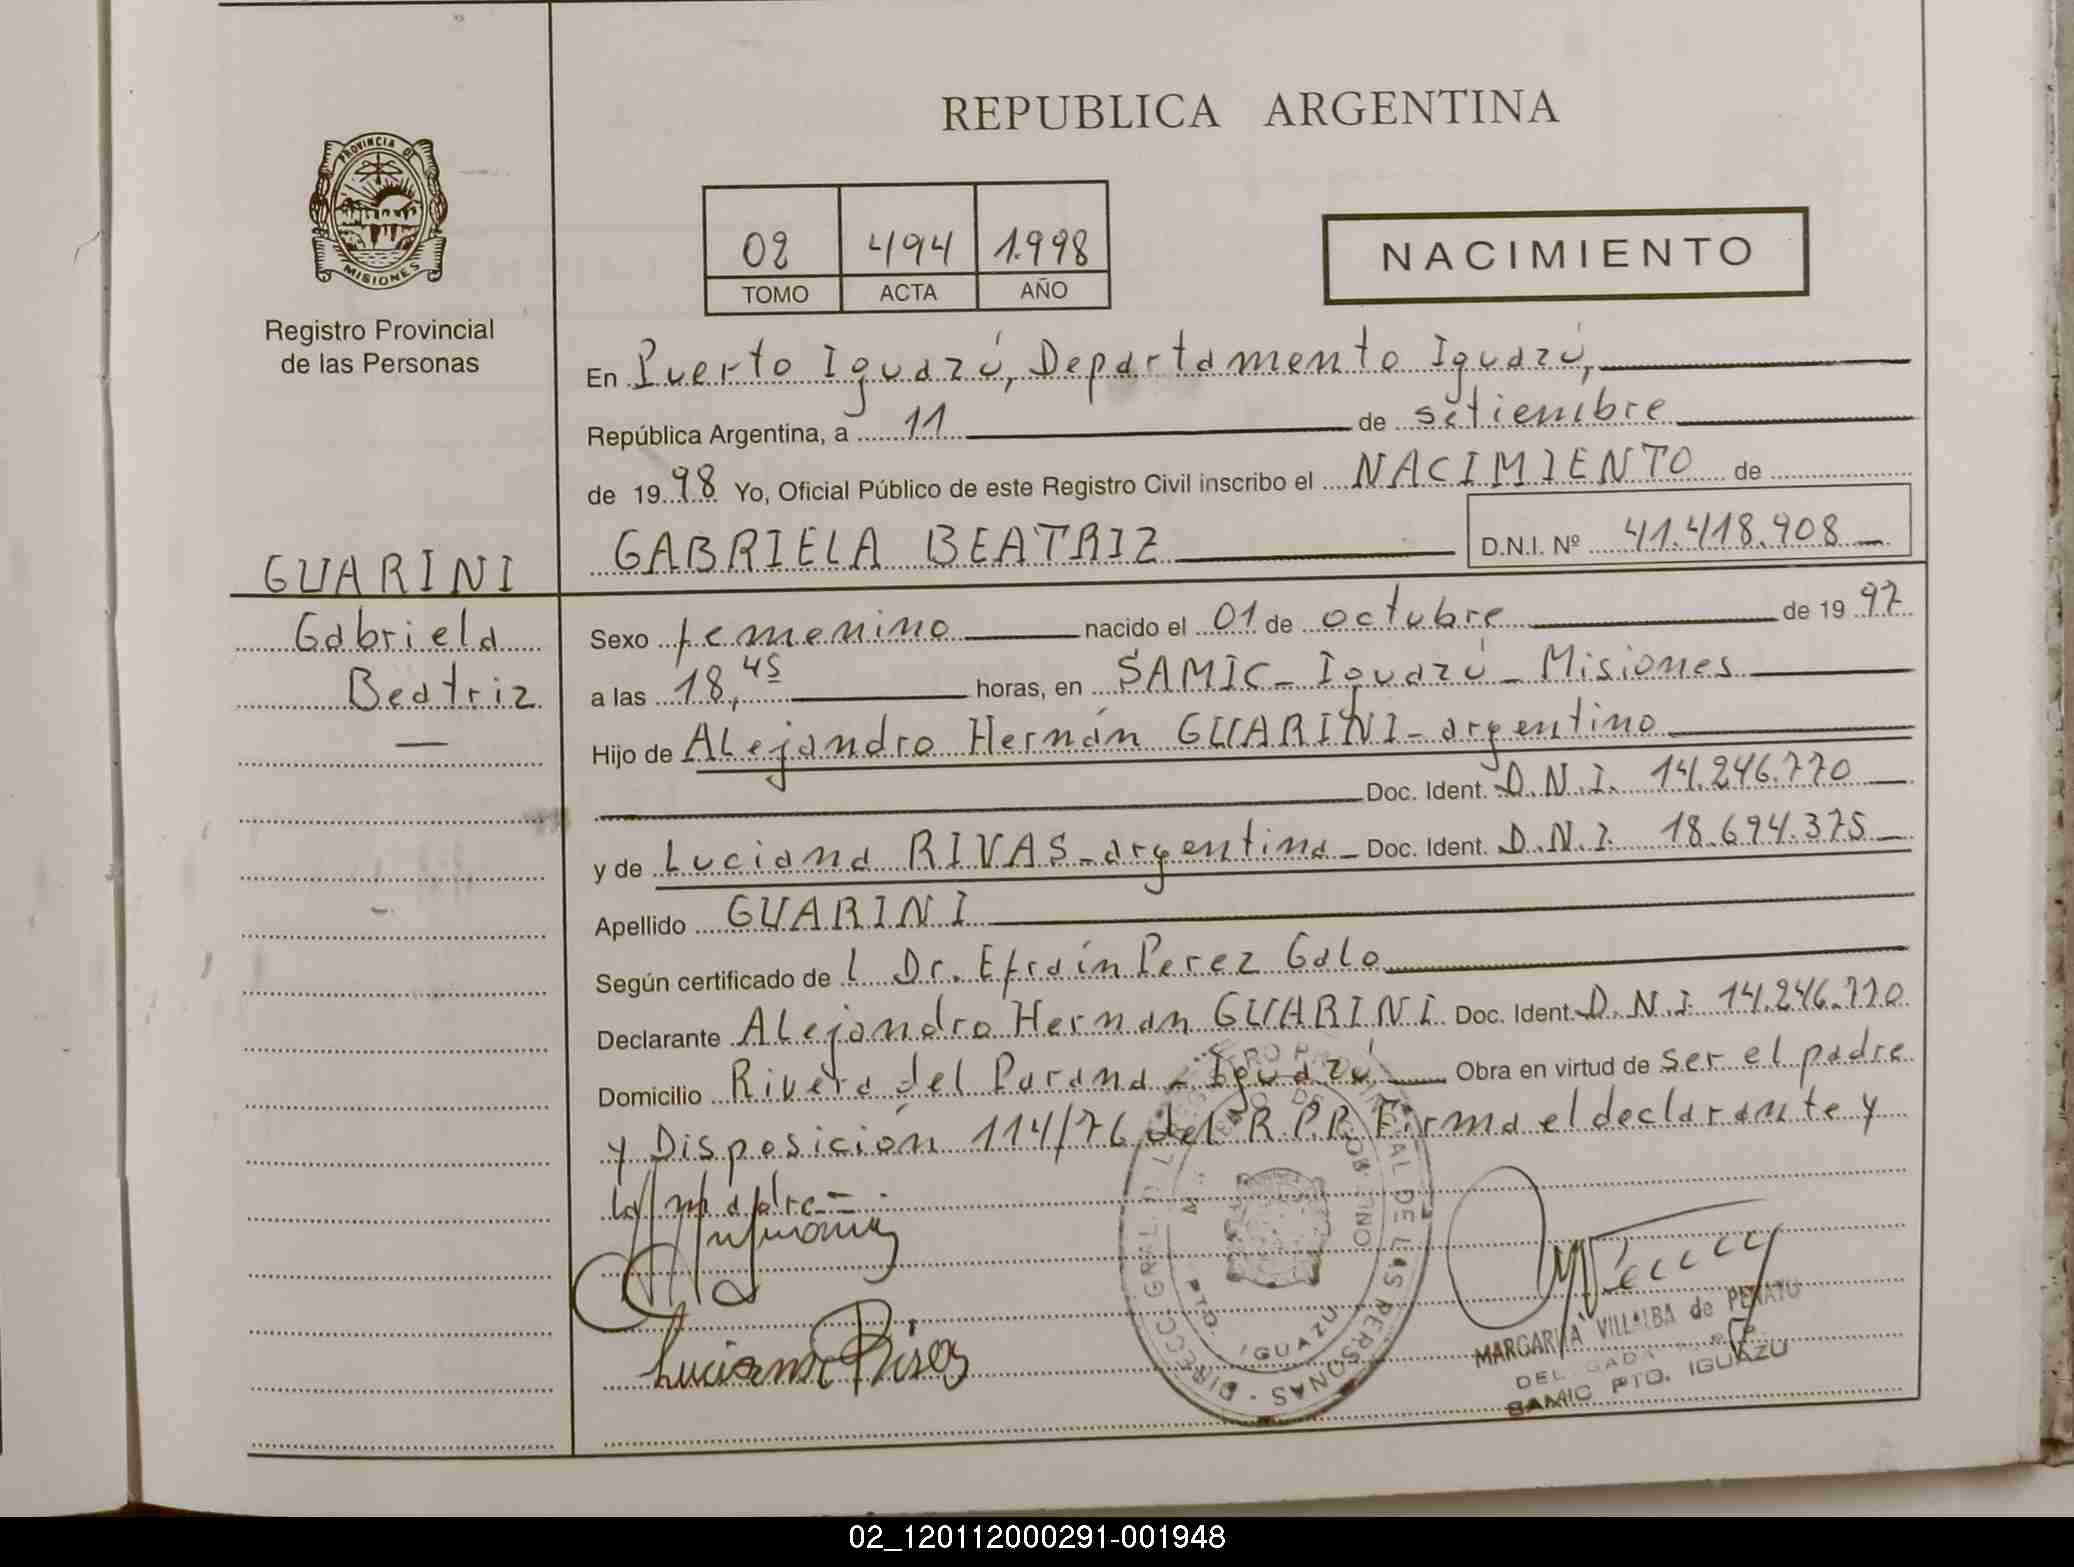 REPUBLICA ARGENTINA
PROVINCIA DE
MISIONES
Registro Provincial
de las Personas
02 494 1.998
TOMO ACTA AÑO
NACIMIENTO
En Puerto Iguazú, Departamento Iguazú,
República Argentina, a 11 de setiembre
de 1998 Yo, Oficial Público de este Registro Civil inscribo el NACIMIENTO de
GABRIELA BEATRIZ D.N.I. Nº 41.418.908
GUARINI
Gabriela
Beatriz
Sexo femenino nacido el 01 de octubre de 1997
a las 18,45 horas, en SAMIC - Iguazú - Misiones
Hijo de Alejandro Hernán GUARINI - argentino
Doc. Ident. D.N.I. 14.246.770
y de Luciana RIVAS - argentina - Doc. Ident. D.N.I. 18.694.375
Apellido GUARINI
Según certificado de l Dr. Efraín Perez Galo
Declarante Alejandro Hernan GUARINI Doc. Ident. D.N.I. 14.246.770
Domicilio Rivera del Parana - Iguazú Obra en virtud de ser el padre
y Disposición 114/76 del R.P.P. Firma el declarante y
la madre -
Luciana Rivas
DIRECC. GRAL. DEL REGISTRO PROVINCIAL DE LAS PERSONAS
PTO. IGUAZU
MARGARITA VILLALBA de PENAYO
SAMIC PTO. IGUAZU
02_120112000291-001948